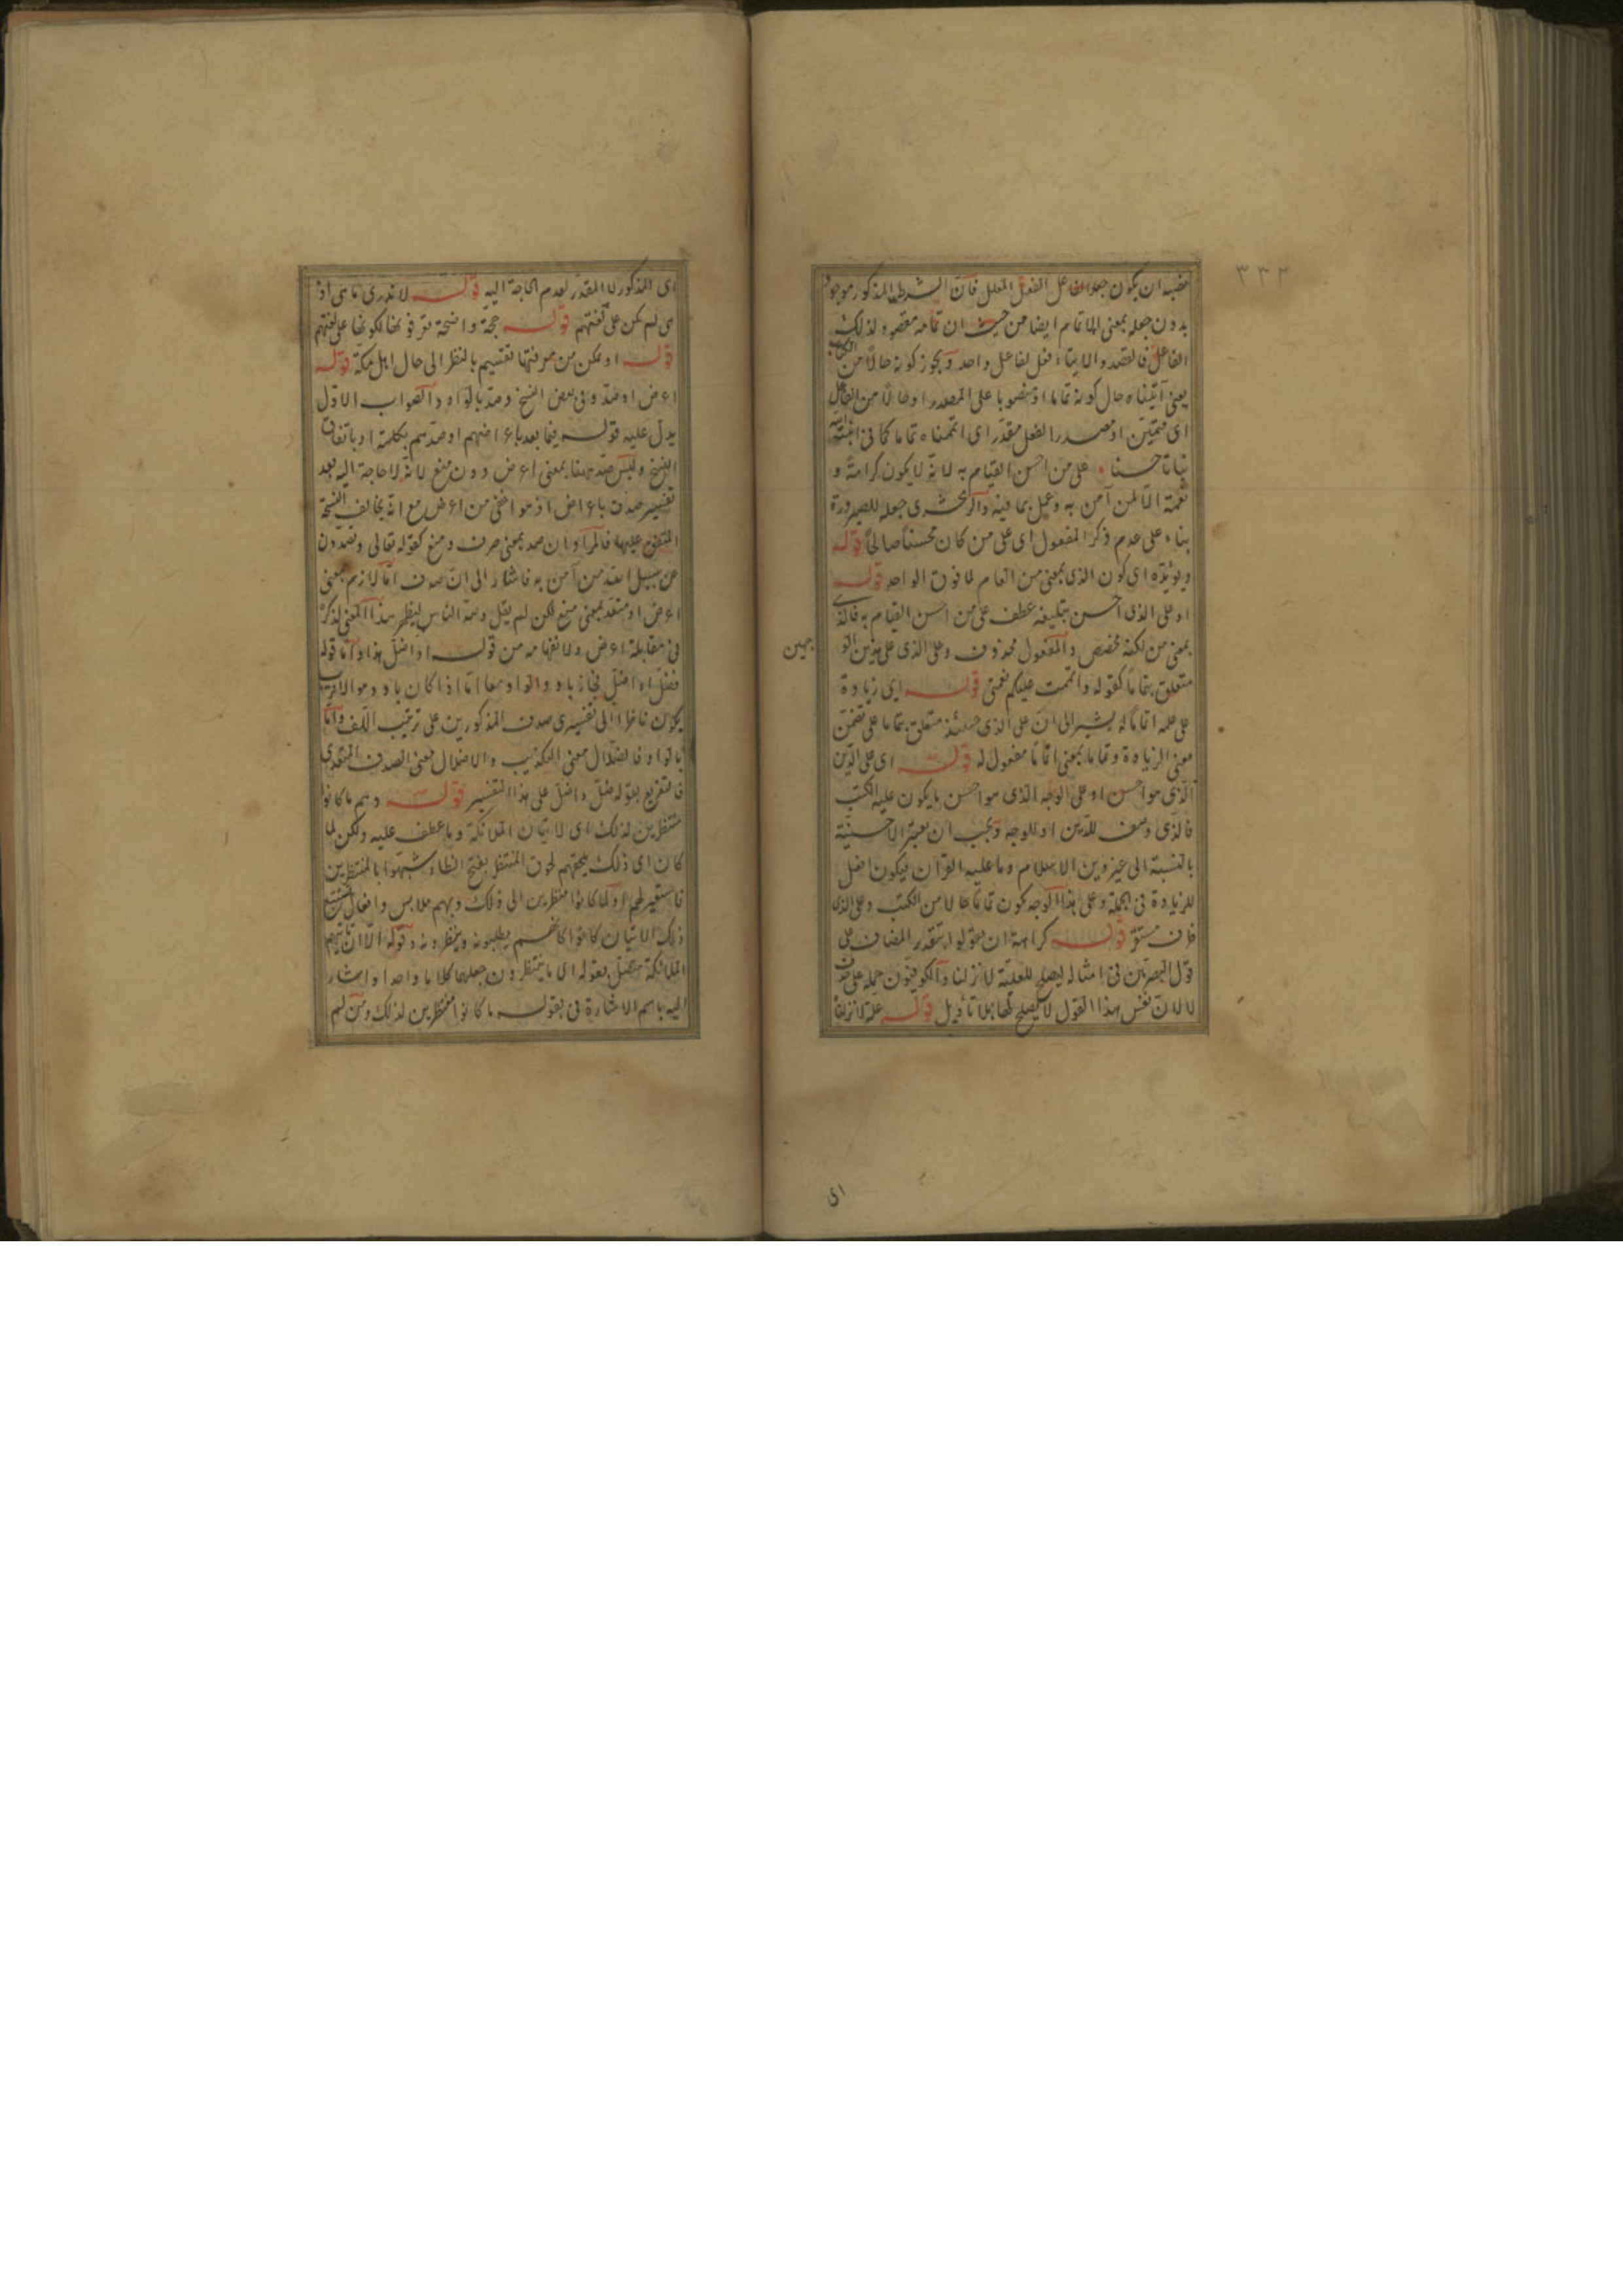 ٣٣٢
نصبه ان يكون جعله الفاعل الفعل المعلل فان الشرط المذكور موجود
بدون جعله بمعنى الاتمام ايضا من حيث ان تمامه مقصود لذلك
الفاعل فالقصد والايتاء فعل لفاعل واحد ويجوز كونه حالا من الكتاب
يعنى آتيناه حال كونه تماما او منصوبا على المصدر او حالا من الفاعل
اى متممين او مصدر الفعل مقدر اى اتممناه تماما كما فى انبته الله
نباتا حسنا على من احسن القيام به لانه لا يكون كرامة و
نعمة الا لمن آمن به وعمل بما فيه والزمخشرى جعله للصيرورة
بناء على عدم ذكر المفعول اى على من كان محسنا صالحا قوله
ويؤيده اى كون الذى بمعنى من العام لما فوق الواحد قوله
او على الذى احسن بتبليغه عطف على من احسن القيام به فالذى
بمعنى من لكنه مخصص والمفعول محذوف وعلى الذى على هذين الو
جهين
متعلق بتماما كقوله واتممت عليكم نعمتى قوله اى زيادة
على علمه اتماما له يشير الى ان على الذى حينئذ متعلق بتماما على تضمن
معنى الزيادة وتماما بمعنى اتماما مفعول له قوله اى على الدين
الذى هو احسن او على الوجه الذى هو احسن ما يكون عليه الكتب
فالذى وصف للدين او للوجه ويجب ان يعتبر الاحسنية
بالنسبة الى غير دين الاسلام وما عليه القرآن فيكون افعل
للزيادة فى الجملة وعلى هذا الوجه كون تماما حالا من الكتب وعلى الذى
ظرف مستقر قوله كراهة ان تقولوا بتقدير المضاف على
قول البصريين فى امثاله ليصلح للعلية لانزلنا والكوفيون حمله على حذف
لا لان نفس هذا القول لا يصلح لها بلا تأويل قوله علة لانزلناه
اى
اى المذكور لا المقدر لعدم الحاجة اليه قوله لا ندرى ما هى او
هى لم تكن على لغتهم قوله حجة واضحة تعرفونها لكونها على لغتهم
قوله او تمكن من معرفتها تقسيم بالنظر الى حال اهل مكة قوله
اعرض او صد وفى بعض النسخ وصد بالواو والصواب الاول
يدل عليه قوله فيما بعد باعراضهم او صدهم بكلمة او باتفاق
النسخ وليس صد ههنا بمعنى اعرض دون منع لانه لا حاجة اليه بعد
تفسير صدف باعراض اذ هو اخفى من اعرض مع انه يخالف النسخة
المتفق عليها فالمراد ان صد بمعنى صرف ومنع كقوله تعالى وتصدون
عن سبيل الله من آمن به فاشار الى ان صدف اما لازم بمعنى
اعرض او متعد بمعنى منع لكن لم يقل وصد الناس ليظهر هذا المعنى لذكره
فى مقابلة اعرض ولانفهامه من قوله او اضل هذا واما قوله
فضل او اضل فجاز باو والواو معا اما اذا كان باو وهو الاقرب
يكون ناظرا الى تفسيرى صدف المذكورين على ترتيب اللف واما
بالواو فالضلال معنى التكذيب والاضلال معنى الصدف المتعدى
فالتفريع بقوله فضل واضل على هذا التفسير قوله وهم ما كانوا
منتظرين لذلك اى لاتيان الملائكة وما عطف عليه ولكن لما
كان اى ذلك يلحقهم لحوق المنتظر بفتح الظاء شبهوا بالمنتظرين
فاستعير لهم او لما كانوا منتظرين الى ذلك وبهم ملابس وافعال تستتبع
ذلك الاتيان كانوا كانهم يطلبونه وينتظرونه وقوله الا ان تاتيهم
الملائكة متصل بقوله اى ما ينتظرون جعلهما كلاما واحدا واشار
اليه باسم الاشارة فى قوله ما كانوا منتظرين لذلك ومن لم